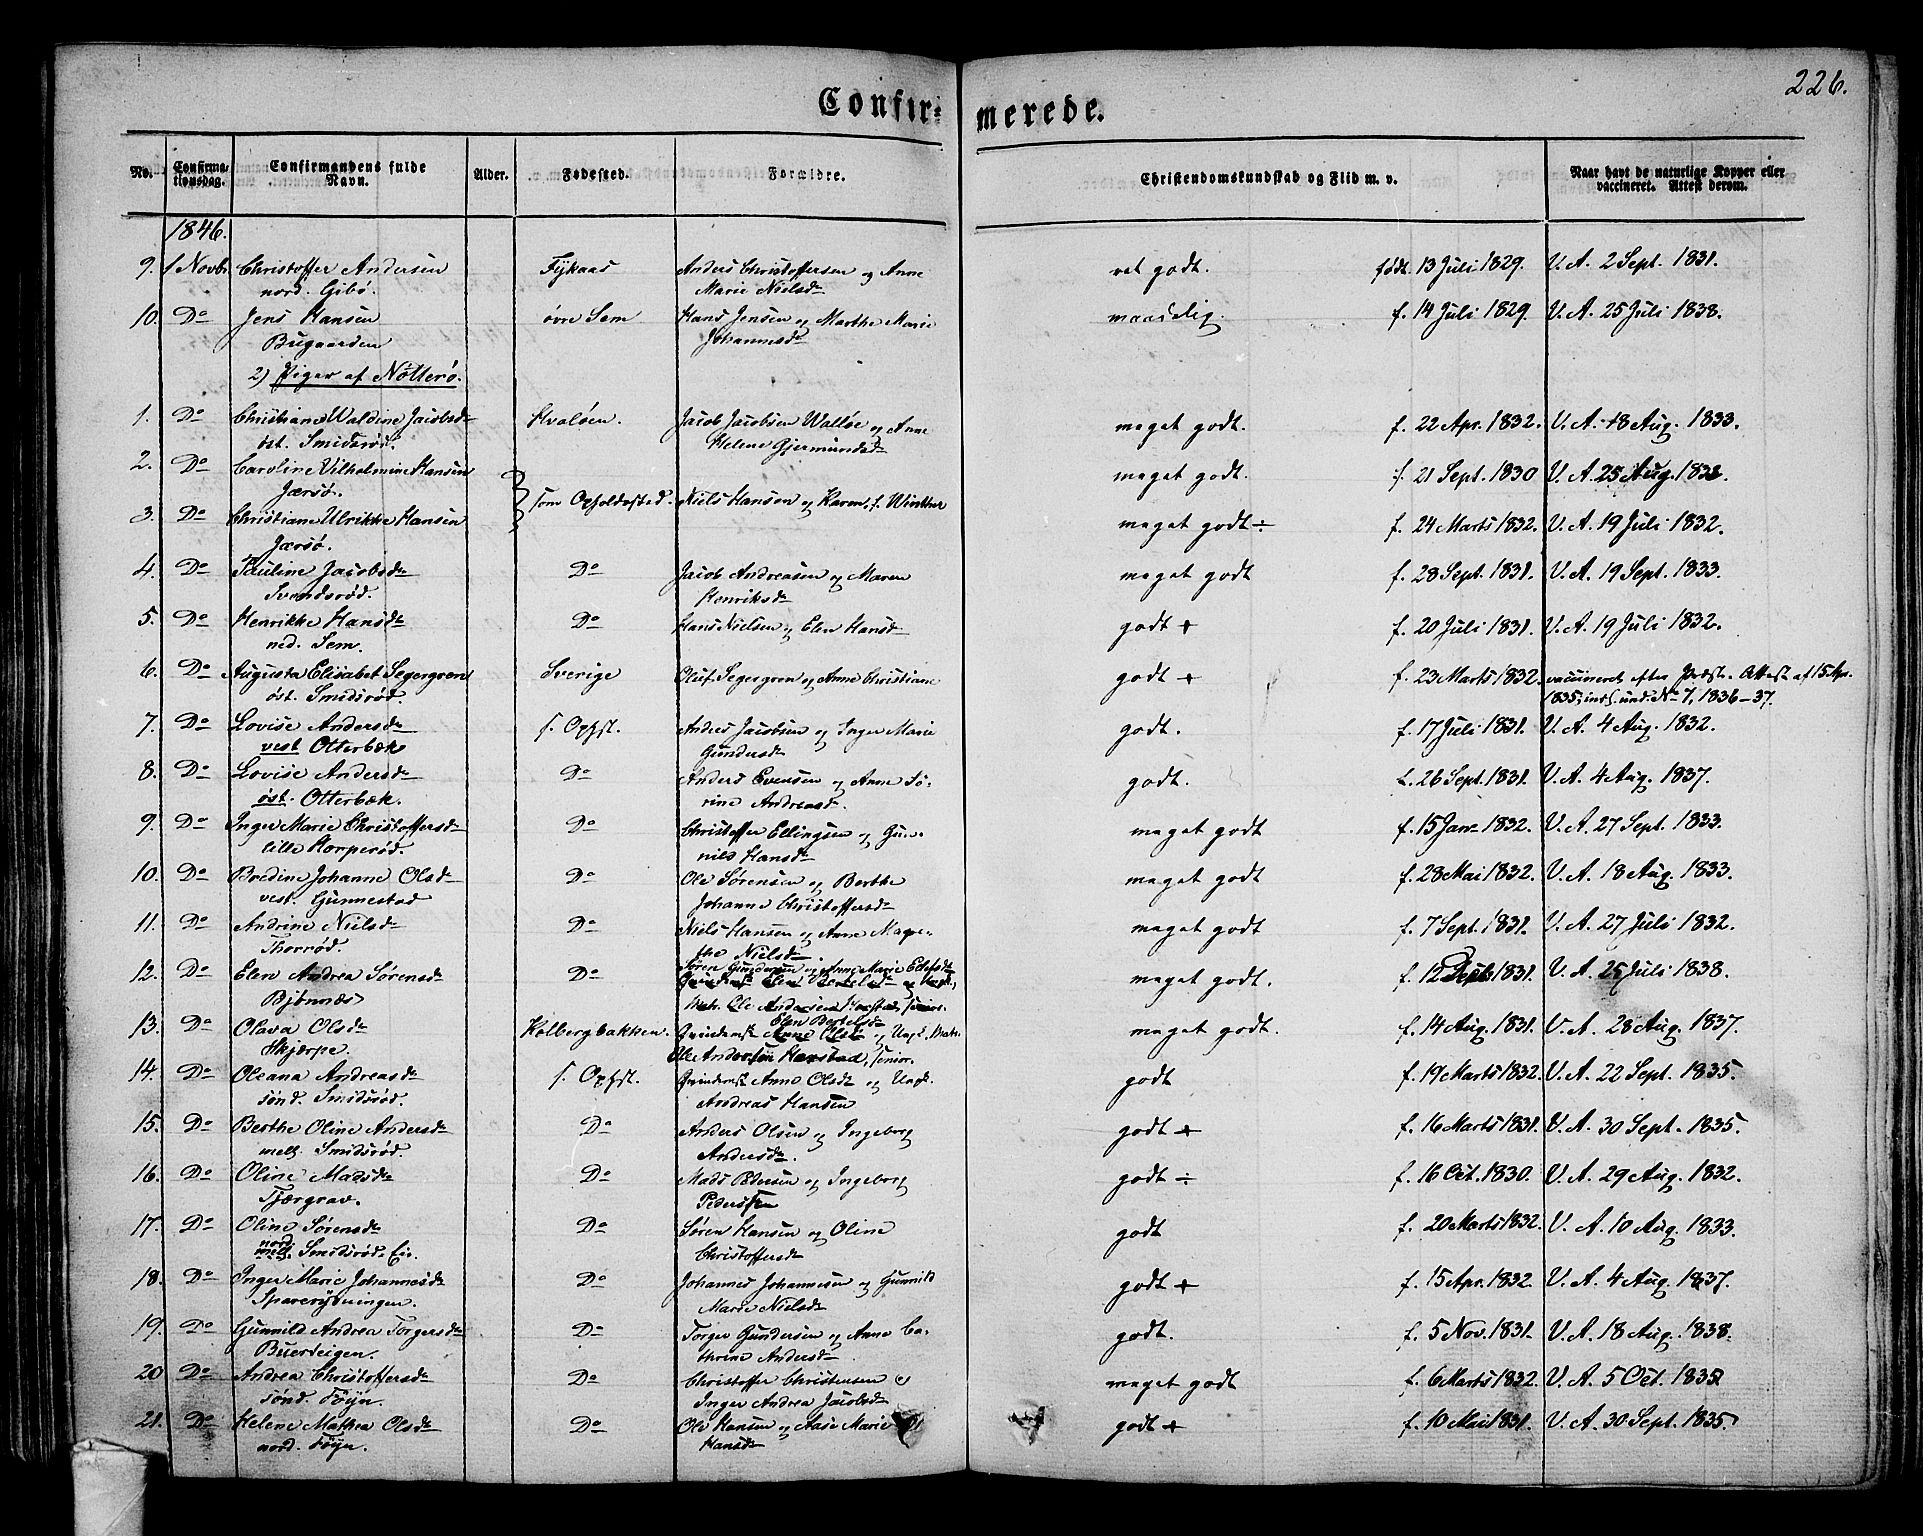 226.
Confir- merede.
No. Confirmationsdag. Confirmandens fulde Navn. Alder. Fødested. Forældre. Christendomskundskab og Flid m. v. Naar havt de naturlige Kopper eller vaccineret. Attest derom.
1846.
9. 1 Novbr Christoffer Andersen Fijkaas Anders Christoffersen og Anne vet godt. født. 13 Juli 1829. V. A. 2 Sept. 1831.
nord. Gibø. Marie Nielsd
10. Do Jens Hansen øvre Sem Hans Jensen og Marthe Marie maadelig. f. 14 Juli 1829. V. A. 25 Juli 1838.
Bugaarden Johannesd
2) Piger af Nøtterø.
1. Do Christiane Waldine Jacobsd Hvaløen. Jacob Jacobsen Walløe og Anne meget godt. f. 22 Apr. 1832. V. A. 18 Aug. 1833.
øst. Smidsrød. Helene Gjermundsd
2. Do Caroline Vilhelmine Hansen meget godt. f. 21 Sept. 1830 V. A. 25 Aug. 1832.
Jærsø. som Opholdssted. Niels Hansen og Karen, f. Winther
3. Do Christiane Ulrikke Hansen meget godt ÷ f. 24 Marts 1832. V. A. 19 Juli 1832.
Jærsø.
4. Do Pauline Jacobsd Do Jacob Andreasen og Maren meget godt f. 28 Sept. 1831. V. A. 19 Sept. 1833.
Svendsrød. Henriksd
5. Do Henrikke Hansd Do Hans Nielsen og Elen Hansd godt + f. 20 Juli 1831. V. A. 19 Juli 1832.
ned. Sem.
6. Do Augusta Elisabet Segergren Sverige Oluf Segergren og Anne Christiane godt + f. 23 Marts 1832. vaccineret efter Præste-Attest af 15 Apr.
øst. Smidsrød. 1835, inds. und. No 7, 1836-37.
7. Do Lovise Andersd s. Ophst. Anders Jacobsen og Inger Marie godt. f. 17 Juli 1831. V. A. 4 Aug. 1832.
vest Otterbæk Gundersd
8. Do Lovise Andersd Do Anders Evensen og Anne Sø- godt. f. 26 Sept. 1831. V. A. 4 Aug. 1837.
øst. Otterbæk. rine Andreasd.
9. Do Inger Marie Christoffersd Do Christoffer Ellingsen og Gun- meget godt f. 15 Jan. 1832. V. A. 27 Sept. 1833.
lille Horperød. nild Hansd
10. Do Bredine Johanne Olsd Do Ole Sørensen og Berthe meget godt f. 28 Mai 1832. V. A. 18 Aug. 1833.
vest. Gunnestad Johanne Christoffersd
11. Do Andrine Nielsd Do Niels Hansen og Anne Magre- meget godt f. 7 Sept. 1831. V. A. 27 Juli 1832.
Thorrød. the Nielsd.
12. Do Elen Andrea Sørensd Do Søren Gundersen og Anne Marie Ellefsd meget godt. f. 12 1831. V. A. 25 Juli 1838.
Bjønnæs
13. Do Olava Olsd Holbergbakken. Elen Bertelsd meget godt. f. 14 Aug. 1831. V. A. 28 Aug. 1837.
Skjærpe. Ole Andersen Harstad, senior.
14. Do Oleana Andreasd s. Ophst. Qvindemst Anne Olsd og Ungk. godt f. 19 Marts 1832. V. A. 22 Sept. 1835.
sønd. Smidsrød. Andreas Hansen
15. Do Berthe Oline Andersd Do Anders Olsen og Ingeborg godt + f. 16 Marts 1831. V. A. 30 Sept. 1835.
mell. Smidsrød. Andersd.
16. Do Oline Madsd Do Mads Pedersen og Ingeborg godt ÷ f. 16 Oct. 1830. V. A. 29 Aug. 1832.
Tjærgrav. Peders
17. Do Oline Sørensd Do Søren Hansen og Oline godt f. 20 Marts 1832. V. A. 10 Aug. 1833.
nord. mell. Smidsrød-Ei. Christoffersd
18. Do Inger Marie Johannesd Do Johannes Johannesen og Gunnild godt + f. 15 Apr. 1832. V. A. 4 Aug. 1837.
Sparerydningen. Marie Nielsd
19. Do Gunnild Andrea Torgersd Do Torger Gundersen og Anne Ca- godt. f. 5 Nov. 1831. V. A. 18 Aug. 1838.
Buerteigen. thrine Andersd
20 Do Andrea Christoffersd Do Christoffer Christensen og meget godt f. 6 Marts 1832. V. A. 5 Oct. 1835
sønd. Føyn. Inger Andrea Jacobsd
21. Do Helene Mathea Olsd Do Ole Hansen og Aase Marie godt + f. 10 Mai 1831. V. A. 30 Sept. 1835
nord. Føyn. Hansd